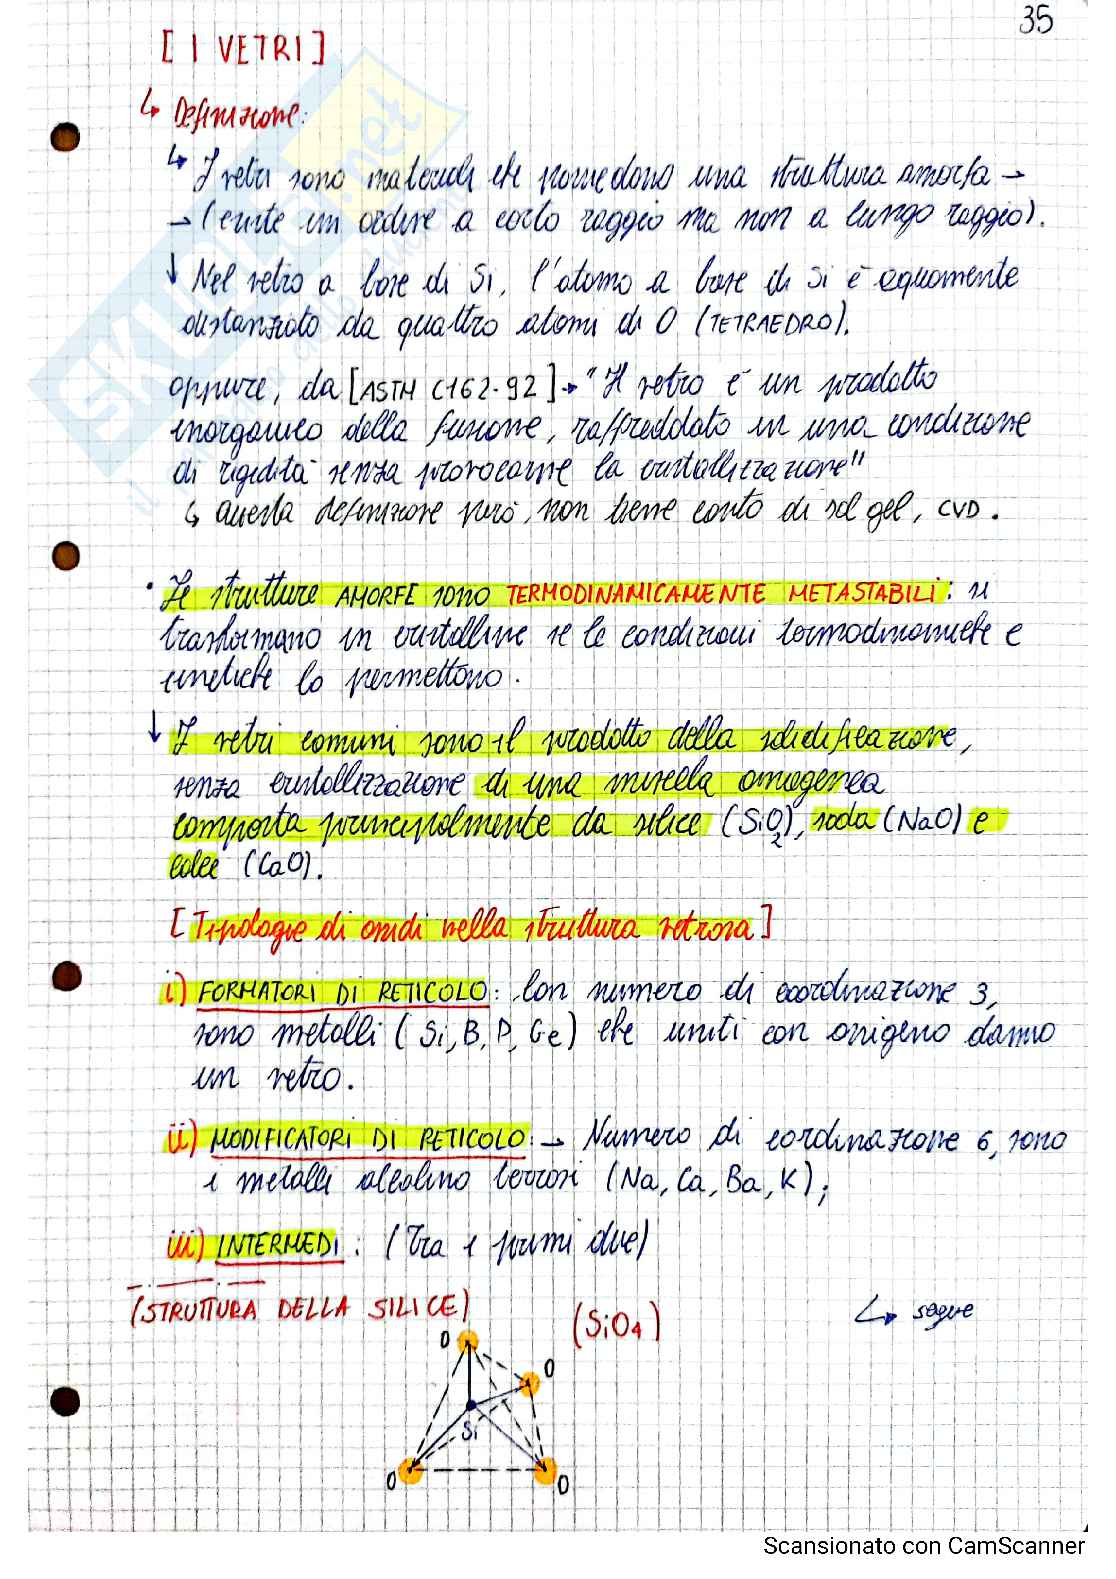 35
[ I VETRI ]
↳ Definizione:
↳ I vetri sono materiali che possiedono una struttura amorfa →
→ (esiste un ordine a corto raggio ma non a lungo raggio).
↓ Nel vetro a base di Si, l'atomo a base di Si è equamente
distanziato da quattro atomi di O (TETRAEDRO).
oppure, da [ASTM C162-92] → "Il vetro è un prodotto
inorganico della fusione, raffreddato in una condizione
di rigidità senza provocarne la cristallizzazione"
↳ Questa definizione però, non tiene conto di sol gel, CVD.
• Le strutture AMORFE sono TERMODINAMICAMENTE METASTABILI: si
trasformano in cristalline se le condizioni termodinamiche e
cinetiche lo permettono.
↓ I vetri comuni sono il prodotto della solidificazione,
senza cristallizzazione di una miscela omogenea
composta principalmente da silice (SiO2), soda (NaO) e
calce (CaO).
[Tipologie di ossidi nella struttura vetrosa]
i) FORMATORI DI RETICOLO: Con numero di coordinazione 3,
sono metalli (Si, B, P, Ge) che uniti con ossigeno danno
un vetro.
ii) MODIFICATORI DI RETICOLO: → Numero di cordinazione 6, sono
i metalli alcalino terrosi (Na, Ca, Ba, K);
iii) INTERMEDI: (Tra i primi due)
(STRUTTURA DELLA SILICE) (SiO4)
↳ segue
O
O
Si
O
O
Scansionato con CamScanner